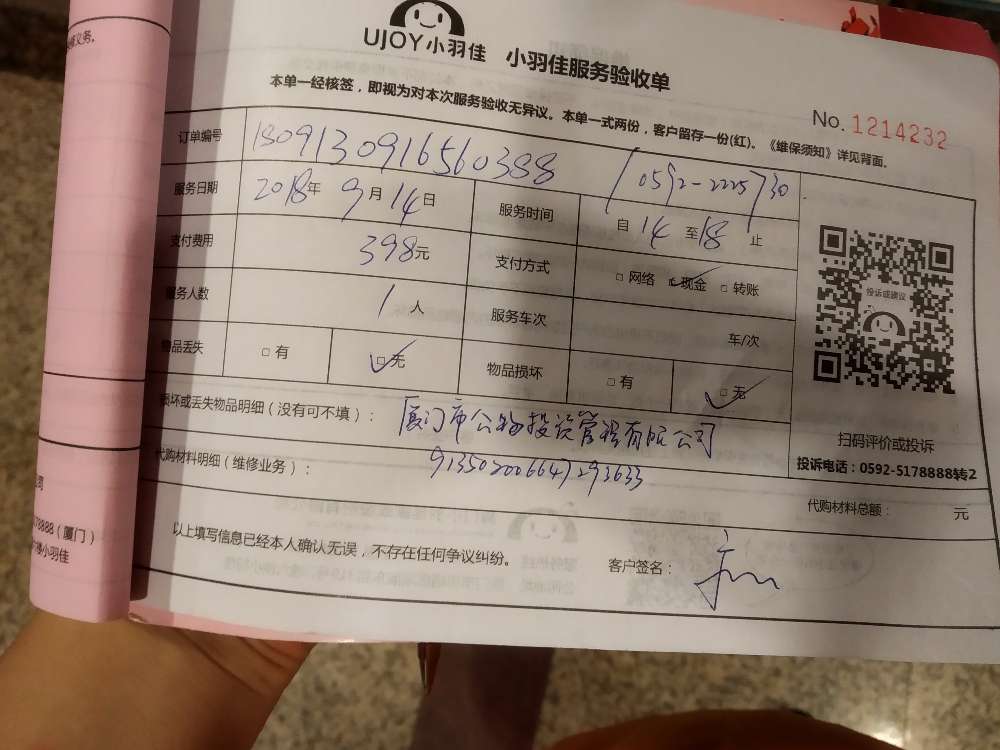 修义务。
UJOY小羽佳 小羽佳服务验收单
本单一经核签，即视为对本次服务验收无异议。本单一式两份，客户留存一份(红)。《维保须知》详见背面。
No. 1214232
订单编号 1809130916560388 / 0592-2225730
服务日期 2018年 9月 14日 服务时间 自 14 至 18 止
支付费用 398元 支付方式 □ 网络 ☑ 现金 □ 转账
服务人数 1 人 服务车次 车/次
物品丢失 □ 有 ☑ 无 物品损坏 □ 有 ☑ 无
投诉或建议
扫码评价或投诉
投诉电话：0592-5178888转2
损坏或丢失物品明细（没有可不填）： 厦门市公物投资管理有限公司
代购材料明细（维修业务）： 913502006647293633
代购材料总额： 元
以上填写信息已经本人确认无误，不存在任何争议纠纷。 客户签名：
公司
78888（厦门）
小羽佳